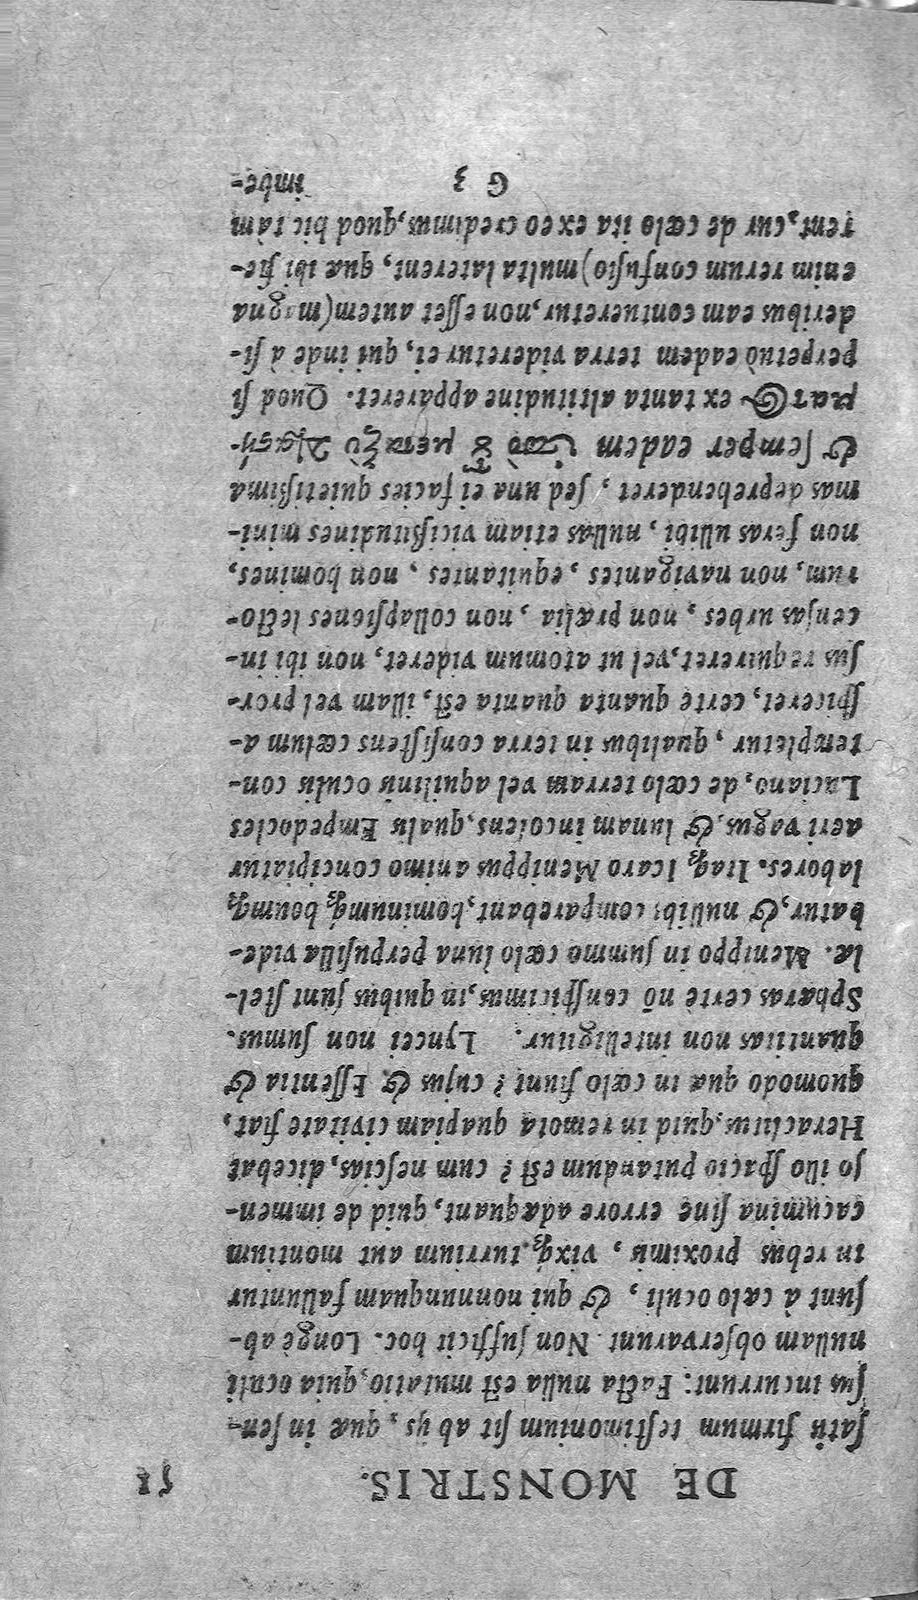 DE MONSTRIS. 51
ſatis firmum teſtimonium ſit ab ijs, quæ in ſen-
ſus incurrunt: Facta nulla eſt mutatio, quia oculi
nullam obſervarunt. Non ſufficit hoc. Longè ab-
ſunt à cælo oculi, & qui nonnunquam falluntur
in rebus proximis, vixq́; turrium aut montium
cacumina ſine errore adæquant, quid de immen-
ſo illo ſpacio putandum eſt? cum neſcias, dicebat
Heraclitus, quid in remota quapiam civitate fiat,
quomodo quæ in cœlo fiunt? cujus & Eſſentia &
quantitas non intelligitur. Lyncei non ſumus.
Sphæras certè nō conſpicimus, in quibus ſunt ſtel-
læ. Menippo in ſummo cœlo luna perpuſilla vide-
batur, & nullibi comparebant, hominumq́; boumq́;
labores. Itaq́; Icaro Menippus animo concipiatur
aeri vagus, & lunam incolens, qualis Empedocles
Luciano, de cœlo terram vel aquilinis oculis con-
templetur, qualibus in terra conſiſtens cœlum a-
ſpiceret, certè quanta quanta eſt, illam vel pror-
ſus requireret, vel ut atomum videret, non ibi in-
cenſas urbes, non prælia, non collapſiones lecto-
rum, non navigantes, equitantes, non homines,
non feras ullibi, nullas etiam viciſſitudines mini-
mas deprehenderet, ſed una ei facies quietiſſima
& ſemper eadem
ex tanta altitudine appareret. Quod ſi
perpetuò eadem terra videretur ei, qui inde à ſi-
deribus eam contueretur, non eſſet autem (magna
enim rerum confuſio) multa laterent, quæ ibi fie-
rent, cur de cœlo ita ex eo credimus, quod hic tàm
G 3 imbe-